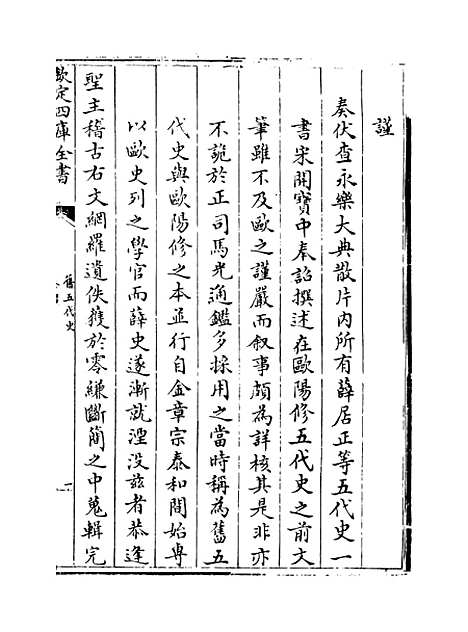 謹
奏伏查永樂大典散片内所有薛居正等五代史一
書宋開寶中奉詔撰述在歐陽修五代史之前文
筆雖不及歐之謹嚴而叙事頗為詳核其是非亦
不詭於正司馬光通鑑多採用之當時稱為舊五
代史與歐陽修之本並行自金章宗泰和間始專
以歐史列之學官而薛史遂漸就湮没兹者恭逢
聖主稽古右文網羅遺佚獲於零縑斷簡之中蒐輯完
欽定四庫全書
舊五代史
一